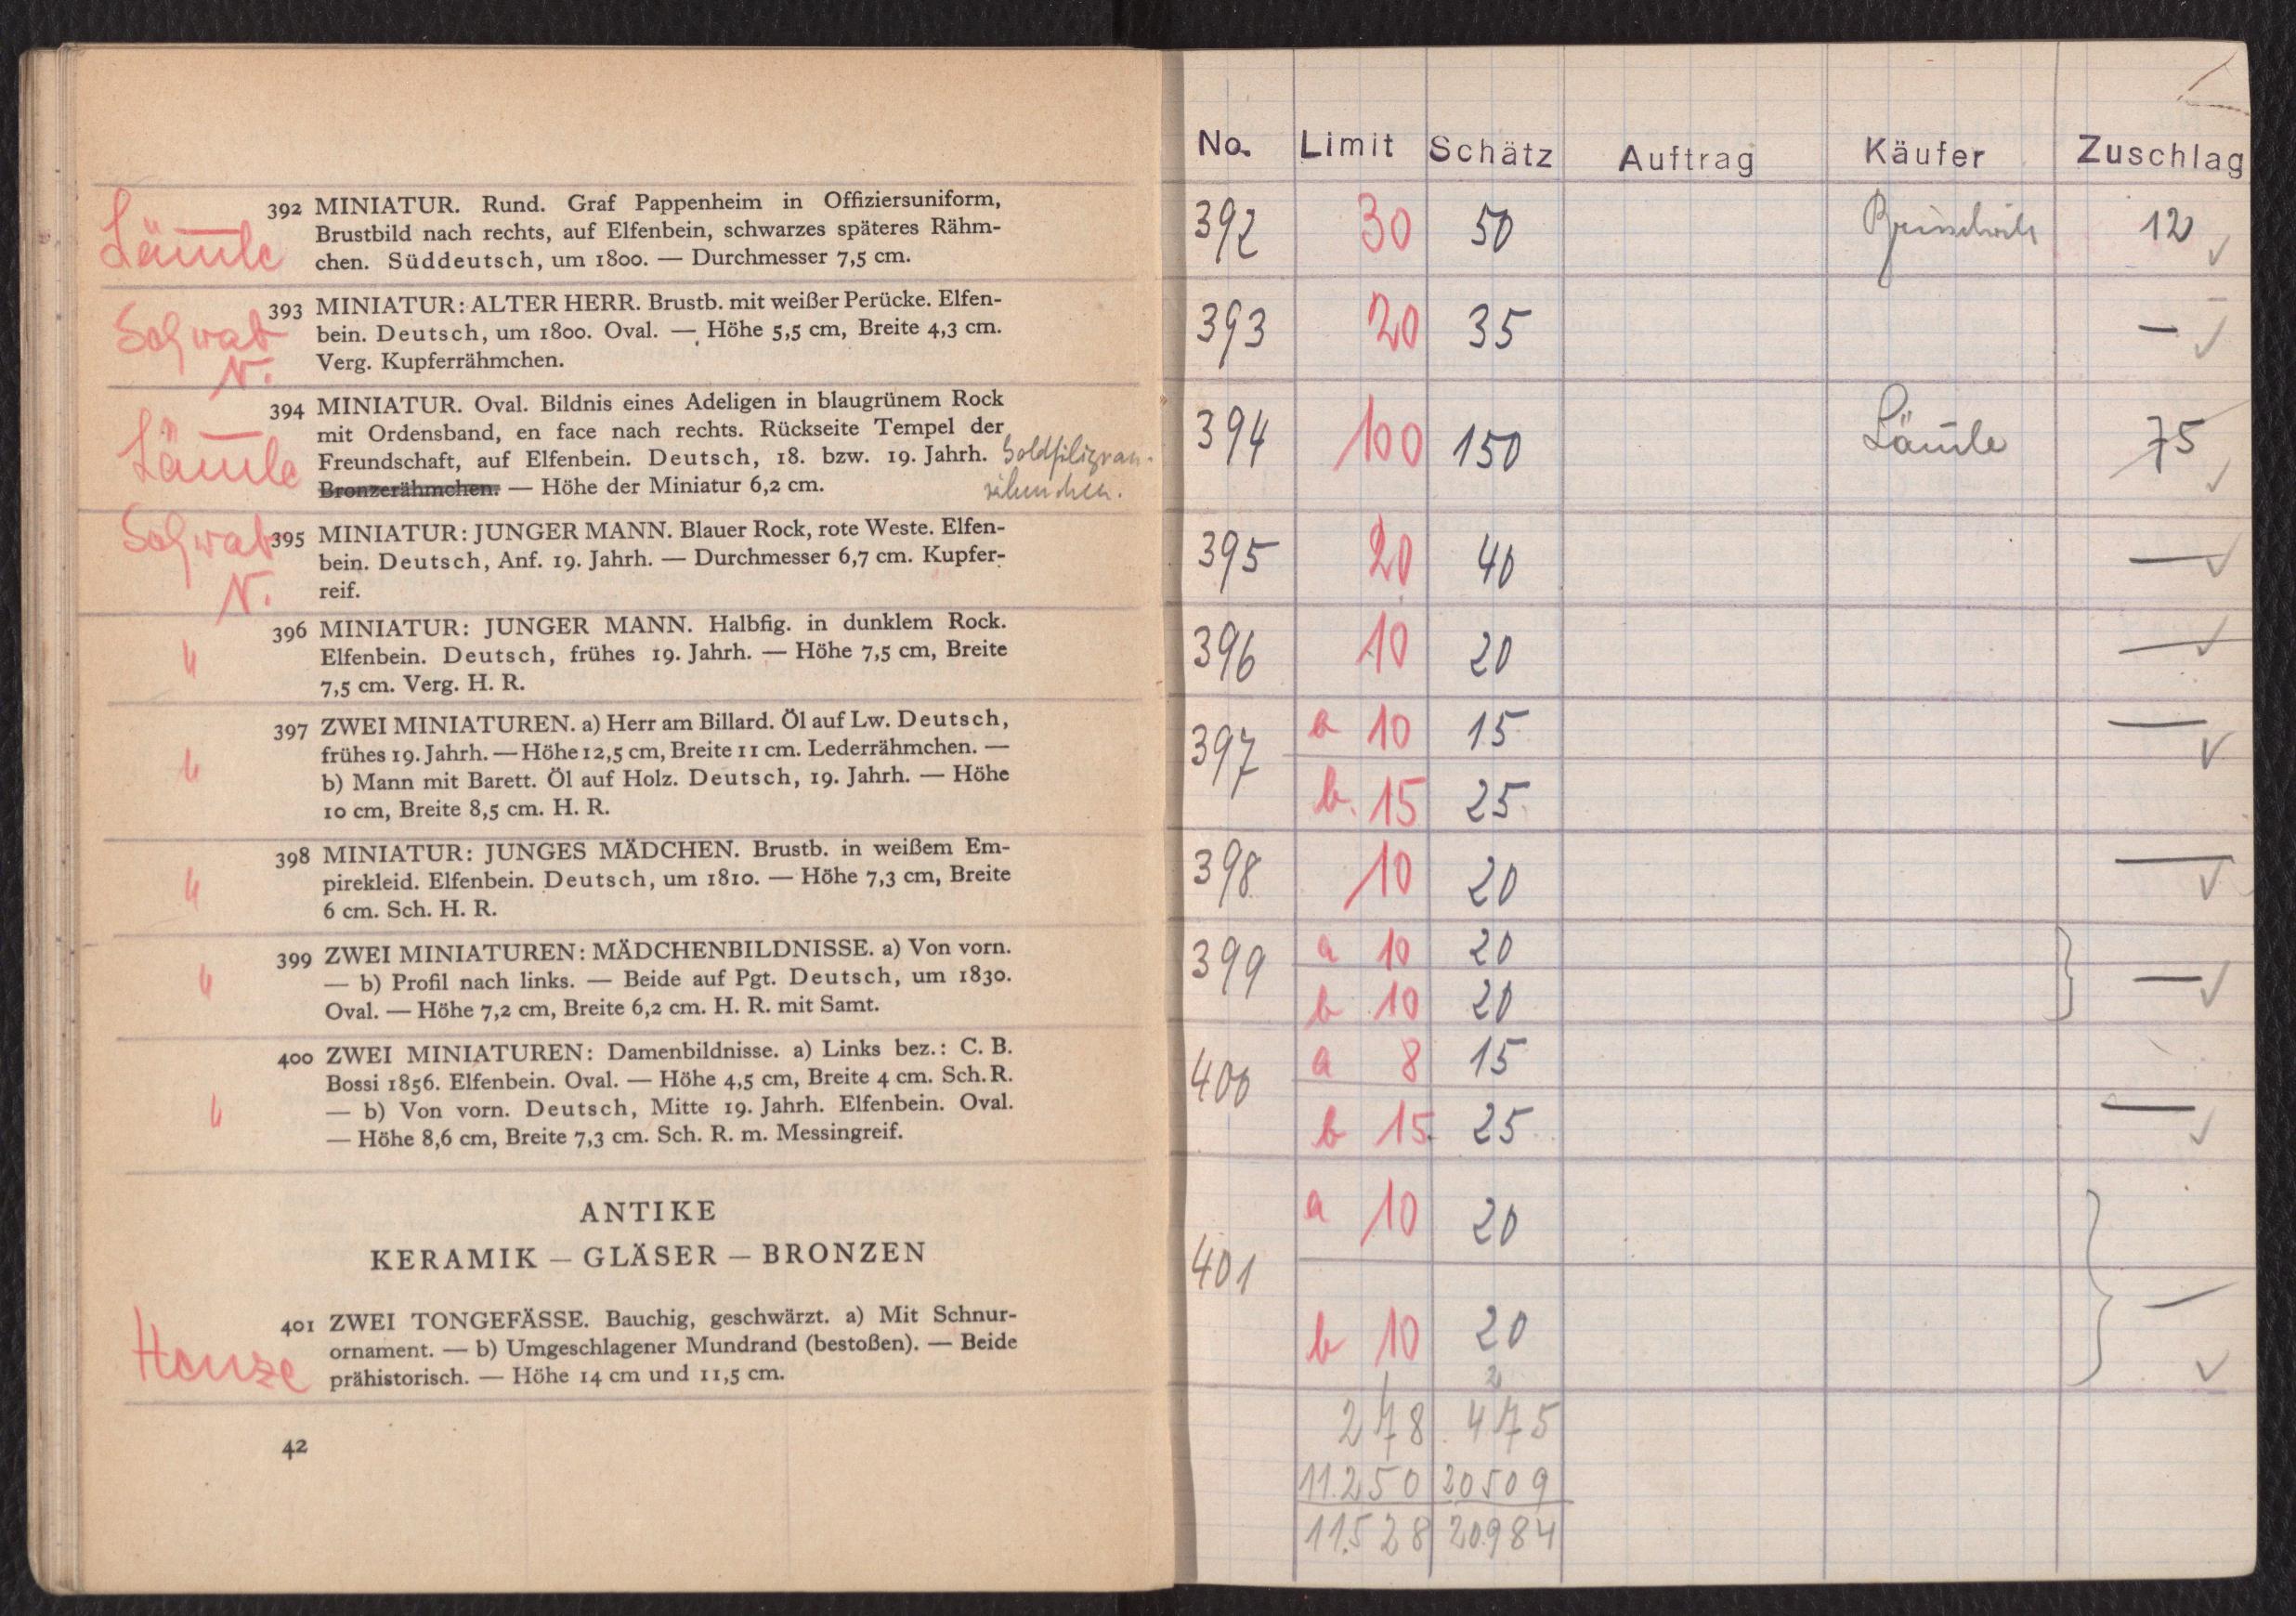 Lämle
392 MINIATUR. Rund. Graf Pappenheim in Offiziersuniform,
Brustbild nach rechts, auf Elfenbein, schwarzes späteres Rähm-
chen. Süddeutsch, um 1800. — Durchmesser 7,5 cm.
Schwab
N.
393 MINIATUR: ALTER HERR. Brustb. mit weißer Perücke. Elfen-
bein. Deutsch, um 1800. Oval. — Höhe 5,5 cm, Breite 4,3 cm.
Verg. Kupferrähmchen.
Lämle
394 MINIATUR. Oval. Bildnis eines Adeligen in blaugrünem Rock
mit Ordensband, en face nach rechts. Rückseite Tempel der
Freundschaft, auf Elfenbein. Deutsch, 18. bzw. 19. Jahrh. Goldfiligran-
Bronzerähmchen. — Höhe der Miniatur 6,2 cm.
Schwab
N.
395 MINIATUR: JUNGER MANN. Blauer Rock, rote Weste. Elfen-
bein. Deutsch, Anf. 19. Jahrh. — Durchmesser 6,7 cm. Kupfer-
reif.
"
396 MINIATUR: JUNGER MANN. Halbfig. in dunklem Rock.
Elfenbein. Deutsch, frühes 19. Jahrh. — Höhe 7,5 cm, Breite
7,5 cm. Verg. H. R.
"
397 ZWEI MINIATUREN. a) Herr am Billard. Öl auf Lw. Deutsch,
frühes 19. Jahrh. — Höhe 12,5 cm, Breite 11 cm. Lederrähmchen. —
b) Mann mit Barett. Öl auf Holz. Deutsch, 19. Jahrh. — Höhe
10 cm, Breite 8,5 cm. H. R.
"
398 MINIATUR: JUNGES MÄDCHEN. Brustb. in weißem Em-
pirekleid. Elfenbein. Deutsch, um 1810. — Höhe 7,3 cm, Breite
6 cm. Sch. H. R.
"
399 ZWEI MINIATUREN: MÄDCHENBILDNISSE. a) Von vorn.
— b) Profil nach links. — Beide auf Pgt. Deutsch, um 1830.
Oval. — Höhe 7,2 cm, Breite 6,2 cm. H. R. mit Samt.
"
400 ZWEI MINIATUREN: Damenbildnisse. a) Links bez.: C. B.
Bossi 1856. Elfenbein. Oval. — Höhe 4,5 cm, Breite 4 cm. Sch. R.
— b) Von vorn. Deutsch, Mitte 19. Jahrh. Elfenbein. Oval.
— Höhe 8,6 cm, Breite 7,3 cm. Sch. R. m. Messingreif.
ANTIKE
KERAMIK — GLÄSER — BRONZEN
Henze
401 ZWEI TONGEFÄSSE. Bauchig, geschwärzt. a) Mit Schnur-
ornament. — b) Umgeschlagener Mundrand (bestoßen). — Beide
prähistorisch. — Höhe 14 cm und 11,5 cm.
42
No. Limit Schätz Auftrag Käufer Zuschlag
392 30 50 120 ✓
393 20 35 — ✓
394 100 150 Lämle 75 ✓
395 20 40 — ✓
396 10 20 — ✓
397 a 10 15 — ✓
b. 15 25
398 10 20 — ✓
399 a 10 20 — ✓
b 10 20
400 a 8 15
b 15 25 — ✓
401 a 10 20 —
b 10 20 ✓
278 475
11.250 20509
11.528 20.984